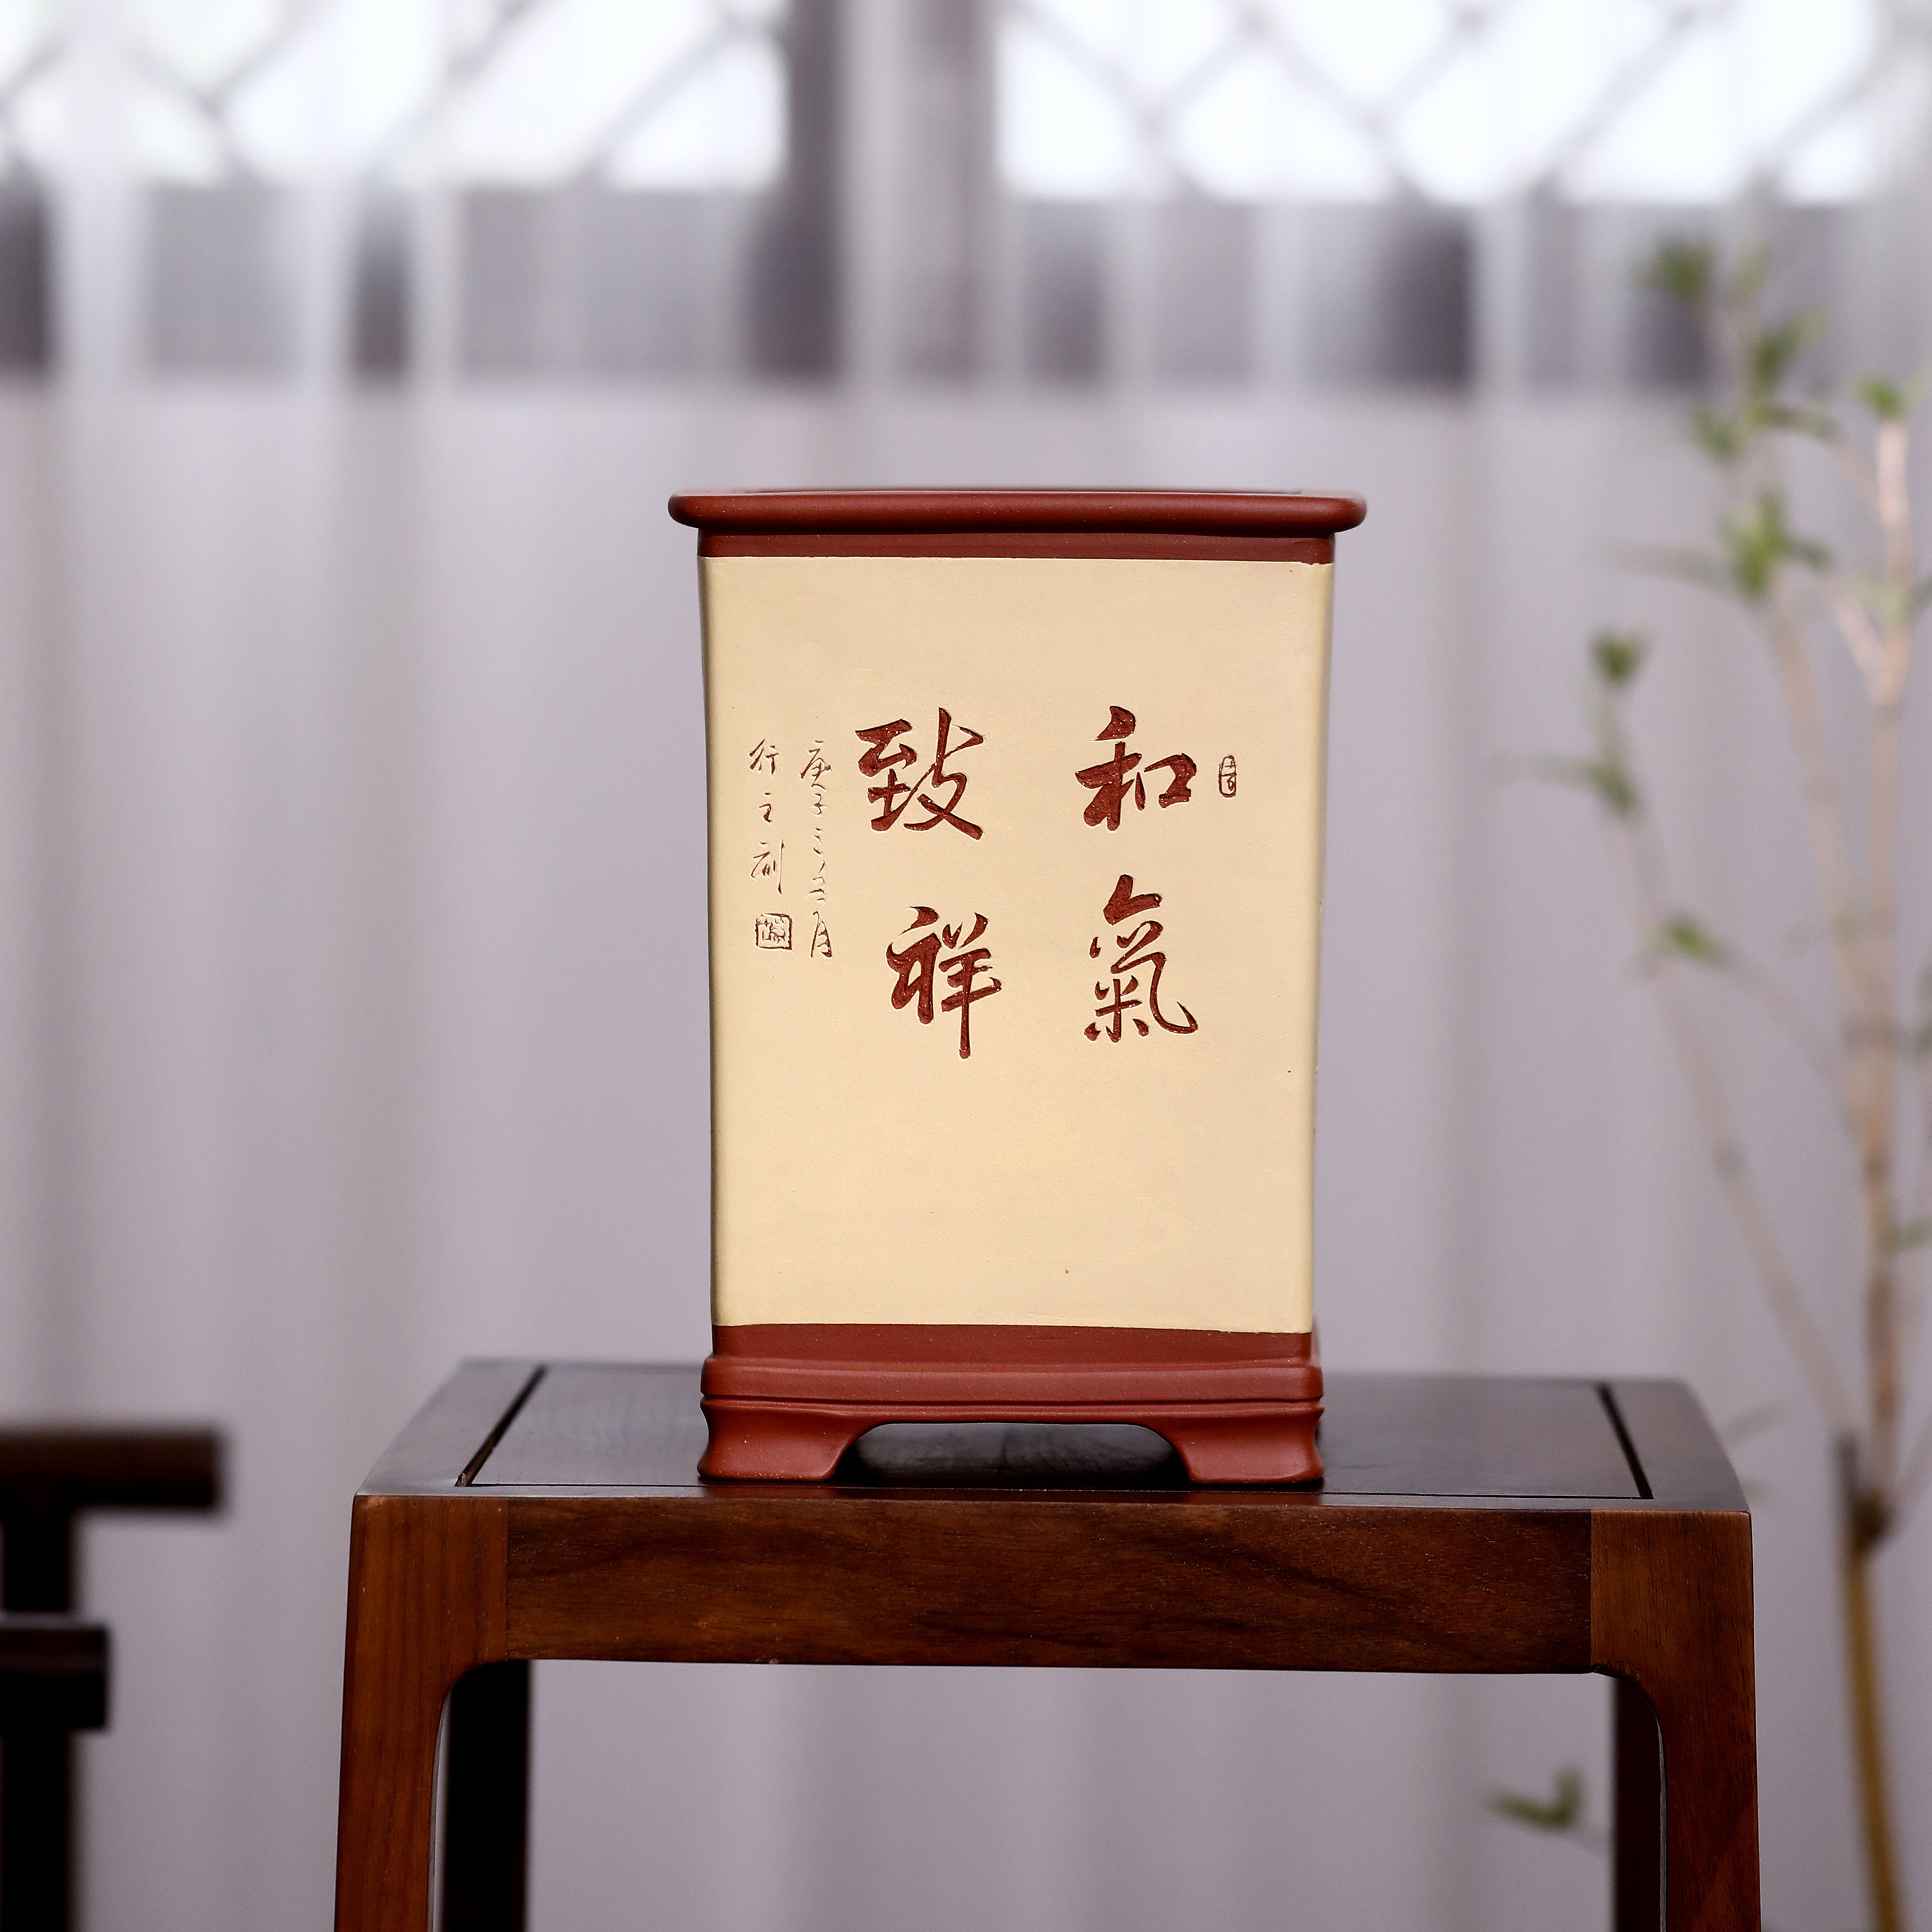 和氣
致祥
庚子之五月
行之刻